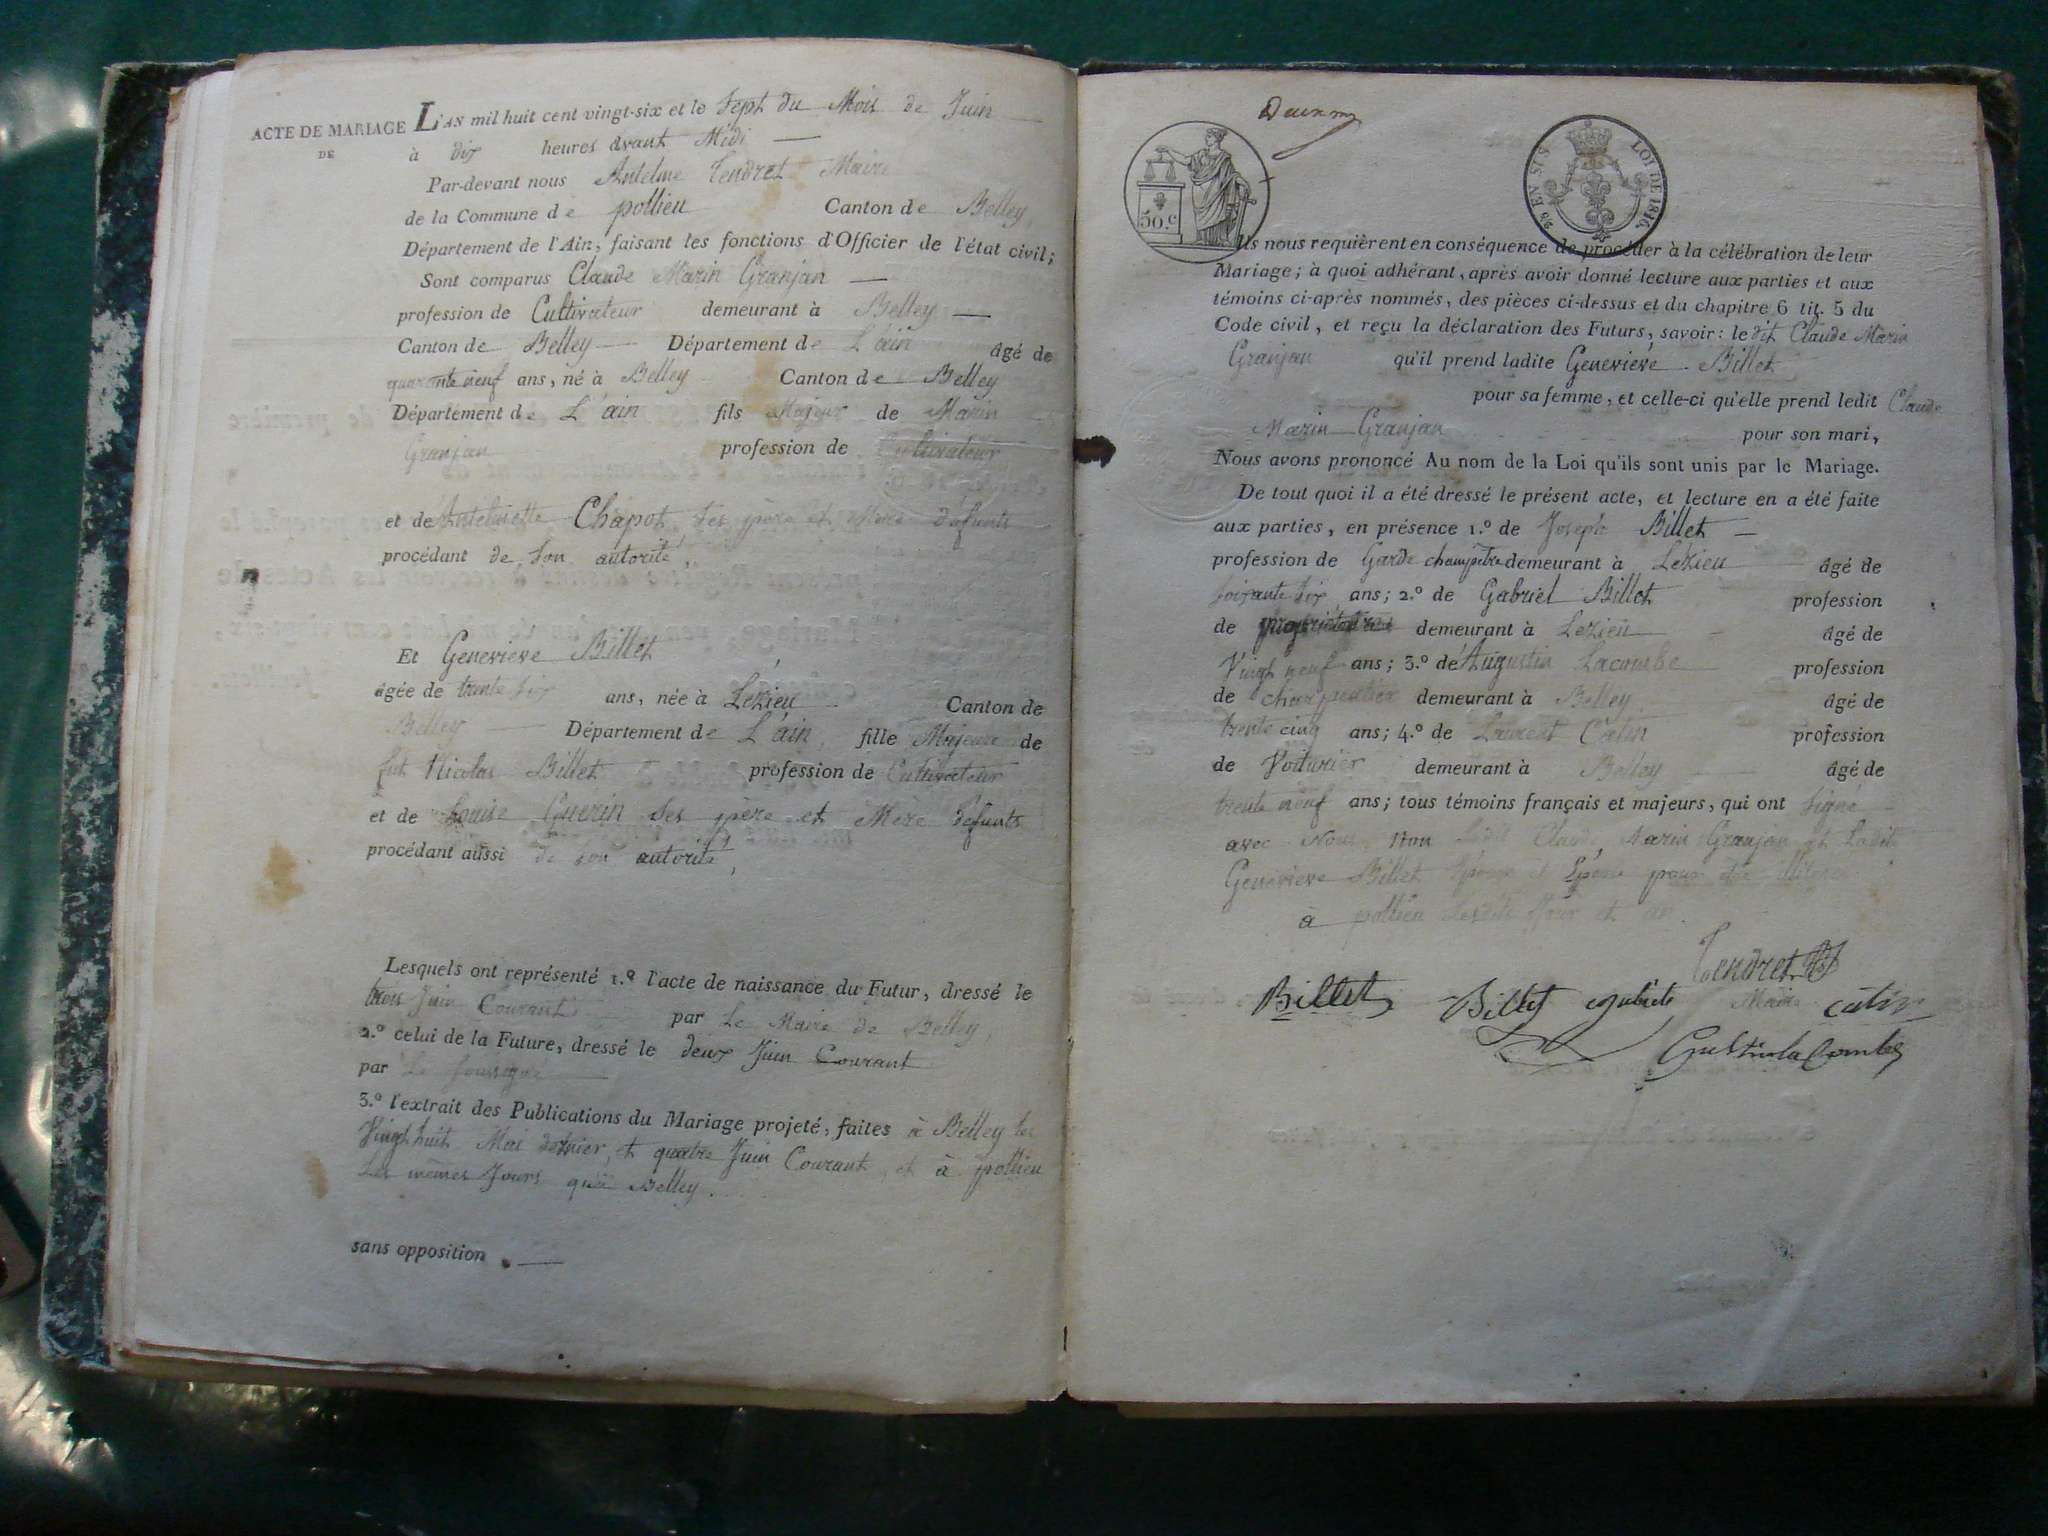 ACTE DE MARIAGE
DE
L'AN mil huit cent vingt-six et le Sept du Mois de Juin
à dix heures avant Midi
Par-devant nous Antelme Tendret Maire
de la Commune de pollieu Canton de Belley,
Département de l'Ain, faisant les fonctions d'Officier de l'état civil;
Sont comparus Claude Marin Granjan
profession de Cultivateur demeurant à Belley
Canton de Belley Département de L'ain âgé de
quarante neuf ans, né à Belley Canton de Belley
Département de L'ain fils Majeur de Marin
Granjan profession de Cultivateur
et de Antelmette Chapot, Ses père et Mère défunts
procédant de Son autorité,
Et Geneviève Billet
âgée de trente six ans, née à Lézieu Canton de
Belley Département de L'ain, fille Majeure de
fut Nicolas Billet profession de Cultivateur
et de Louise Guerin Ses père et Mère défunts
procédant aussi de Son autorité,
Lesquels ont représenté 1.º l'acte de naissance du Futur, dressé le
trois Juin Courant par Le Maire de Belley,
2.º celui de la Future, dressé le deux Juin Courant
par Le Soussigné
3.º l'extrait des Publications du Mariage projeté, faites à Belley les
Vingt huit Mai dernier, et quatre Juin Courant, et à pollieu
Les mêmes Jours qu'à Belley.
sans opposition.
50.c
LOI DE 1816.
Ils nous requièrent en conséquence de procéder à la célébration de leur
Mariage; à quoi adhérant, après avoir donné lecture aux parties et aux
témoins ci-après nommés, des pièces ci-dessus et du chapitre 6 tit. 5 du
Code civil, et reçu la déclaration des Futurs, savoir: ledit Claude Marin
Granjan qu'il prend ladite Geneviève Billet
pour sa femme, et celle-ci qu'elle prend ledit Claude
Marin Granjan pour son mari,
Nous avons prononcé Au nom de la Loi qu'ils sont unis par le Mariage.
De tout quoi il a été dressé le présent acte, et lecture en a été faite
aux parties, en présence 1.º de Joseph Billet
profession de Garde champêtre demeurant à Lézieu âgé de
soixante six ans; 2.º de Gabriel Billet profession
de propriétaire demeurant à Lezieu âgé de
Vingt neuf ans; 3.º de Augustin Lacombe profession
de charpentier demeurant à Belley âgé de
trente cinq ans; 4.º de Laurent Catin profession
de Voiturier demeurant à Belley âgé de
trente neuf ans; tous témoins français et majeurs, qui ont Signé
avec Nous, Non Ledit Claude Marin Granjan et Ladite
Geneviève Billet Epoux et Epouse pour être illiterés
à pollieu Lesdits Jour et an.
Tendret
Billet Billet Maire catin